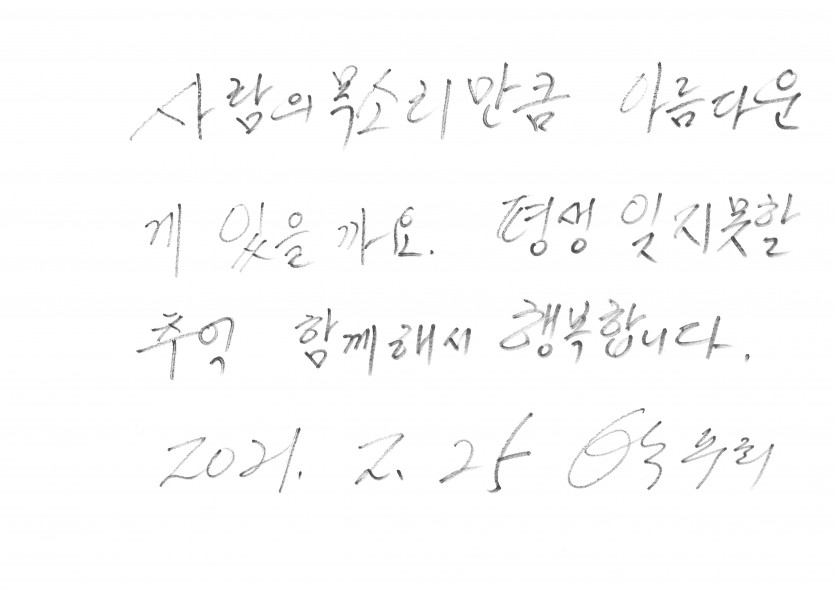 사람의 목소리만큼 아름다운
게 있을까요. 평생 잊지못할
추억 함께해서 행복합니다.
2021. 2. 25